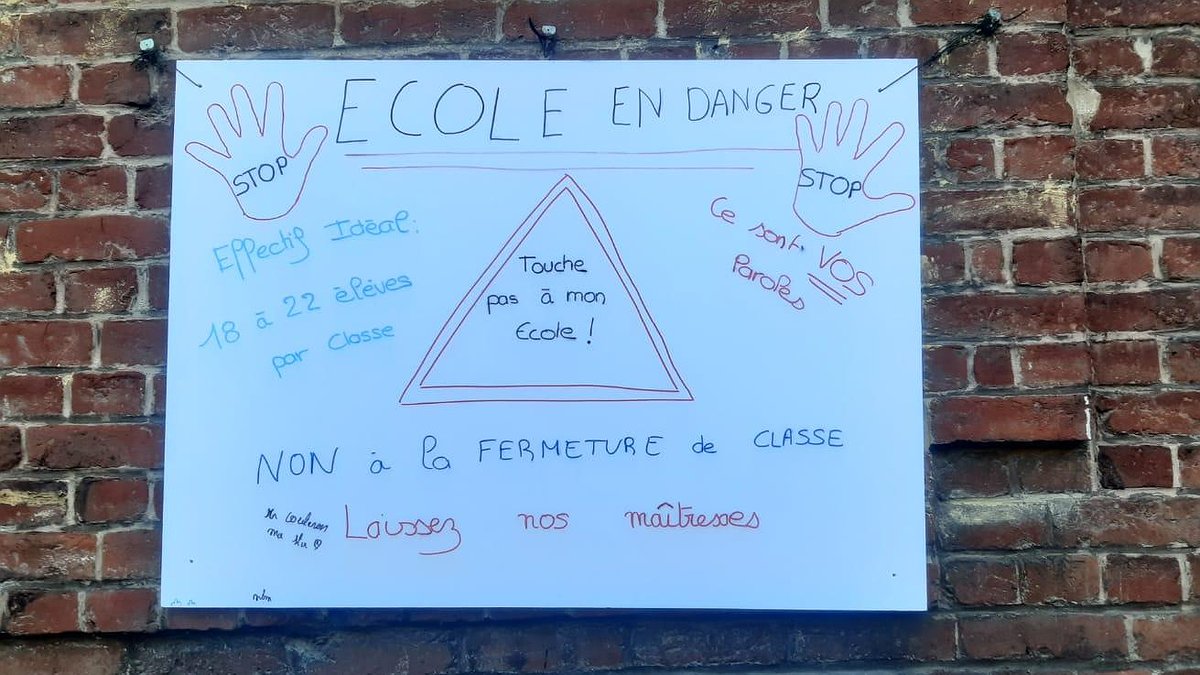 ECOLE EN DANGER
STOP
STOP
Effectif Idéal:
18 à 22 élèves
par classe
Touche
pas à mon
Ecole !
Ce sont VOS
Paroles
NON à la FERMETURE de CLASSE
Laissez nos maîtresses